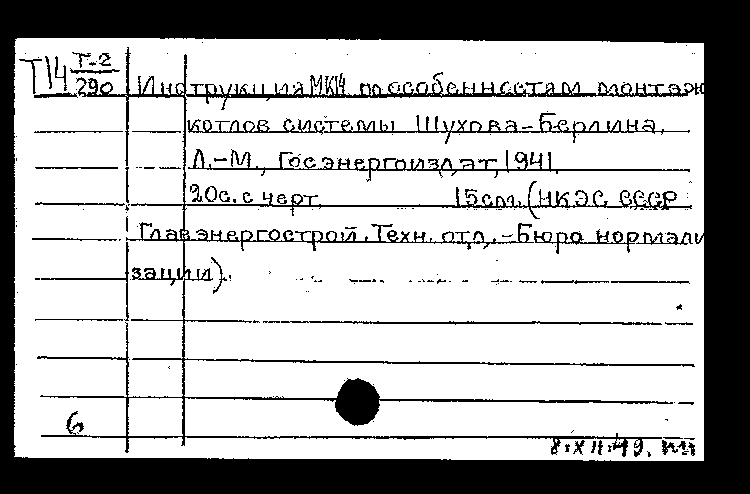 Т14 Т-2
290
Инструкция МКИ по особенностям монтаж
котлов системы Шухова-Берлина.
Л.-М., Госэнергоиздат, 1941.
20с. с черт. 15см. (НКЭС СССР
Главэнергострой. Техн. отд. -Бюро нормали
зации).
6
8.XII.49.